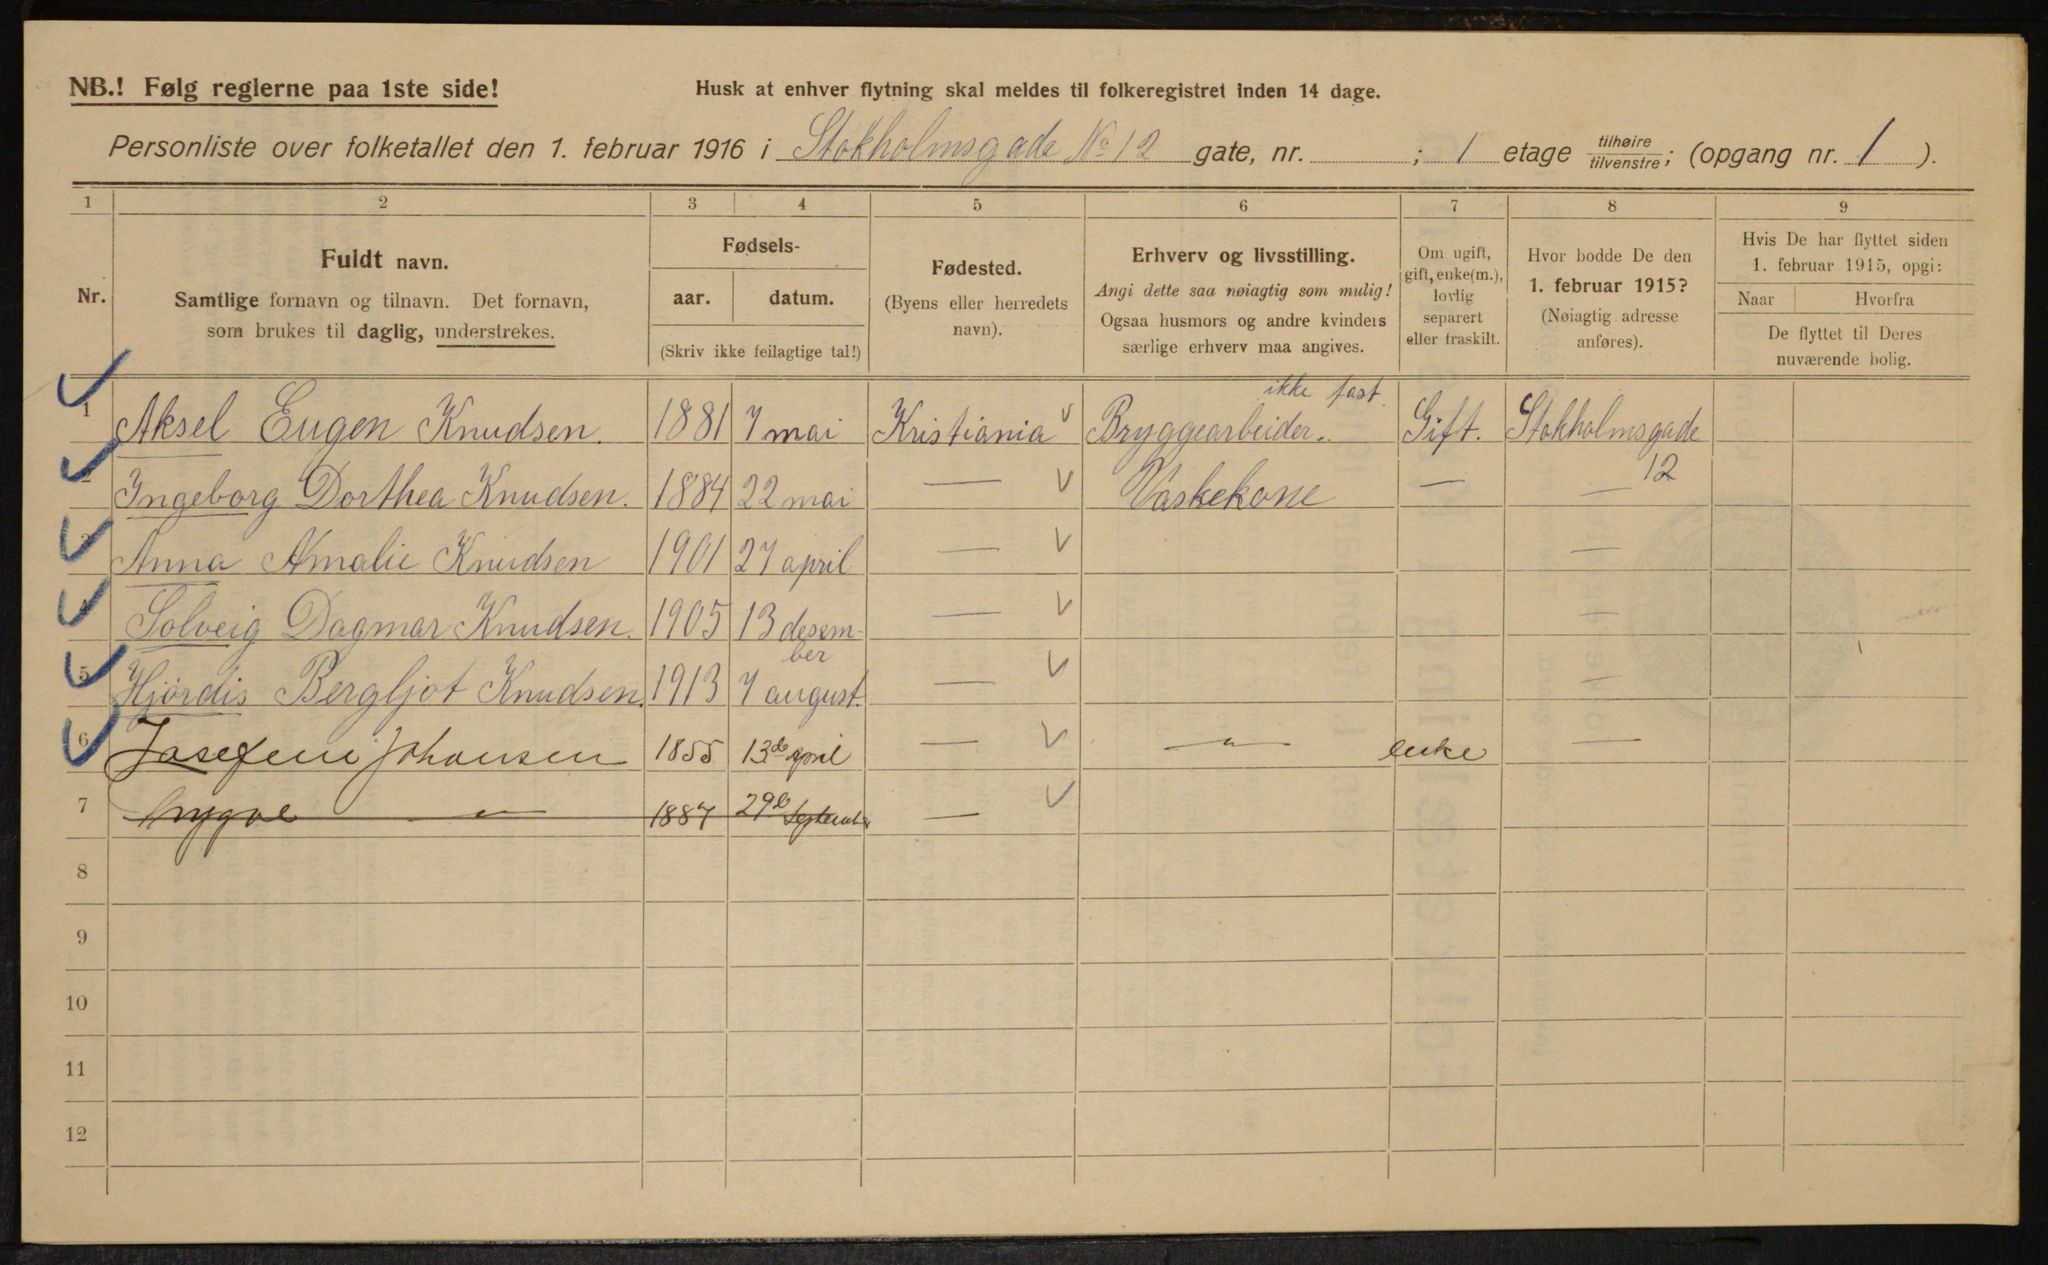 NB.! Følg reglerne paa 1ste side!
Husk at enhver flytning skal meldes til folkeregistret inden 14 dage.
Personliste over folketallet den 1. februar 1916 i Stokholmsgade No 12 gate, nr. ; 1 etage tilhøire/tilvenstre; (opgang nr. 1 ).
1 2 3 4 5 6 7 8 9
Nr.
Fuldt navn.
Samtlige fornavn og tilnavn. Det fornavn,
som brukes til daglig, understrekes.
Fødsels-
aar. datum.
(Skriv ikke feilagtige tal!)
Fødested.
(Byens eller herredets
navn).
Erhverv og livsstilling.
Angi dette saa nøiagtig som mulig!
Ogsaa husmors og andre kvinders
særlige erhverv maa angives.
Om ugift,
gift, enke(m.),
lovlig
separert
eller fraskilt.
Hvor bodde De den
1. februar 1915?
(Nøiagtig adresse
anføres).
Hvis De har flyttet siden
1. februar 1915, opgi:
Naar Hvorfra
De flyttet til Deres
nuværende bolig.
ikke fast
1 Aksel Eugen Knudsen. 1881 7 mai Kristiania Bryggearbeider. Gift. Stokholmsgade
12
2 Ingeborg Dorthea Knudsen. 1884 22 mai — Vaskekone — —
3 Anna Amalie Knudsen 1901 27 april — —
4 Solveig Dagmar Knudsen. 1905 13 desem-
ber — —
5 Hjördis Bergljot Knudsen. 1913 7 august. — —
6 Josefine Johansen 1855 13de april — — " — enke —
7 — " — 1887 29de September —
8
9
10
11
12